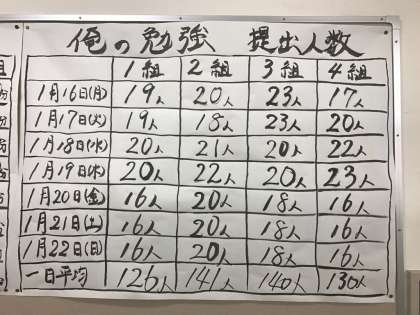 俺の勉強 提出人数
1組 2組 3組 4組
1月16日(月) 19人 20人 23人 17人
1月17日(火) 19人 18人 23人 20人
1月18日(水) 20人 21人 20人 22人
1月19日(木) 20人 22人 20人 23人
1月20日(金) 16人 20人 18人 16人
1月21日(土) 16人 20人 18人 16人
1月22日(日) 16人 20人 18人 16人
一日平均 126人 141人 140人 130人